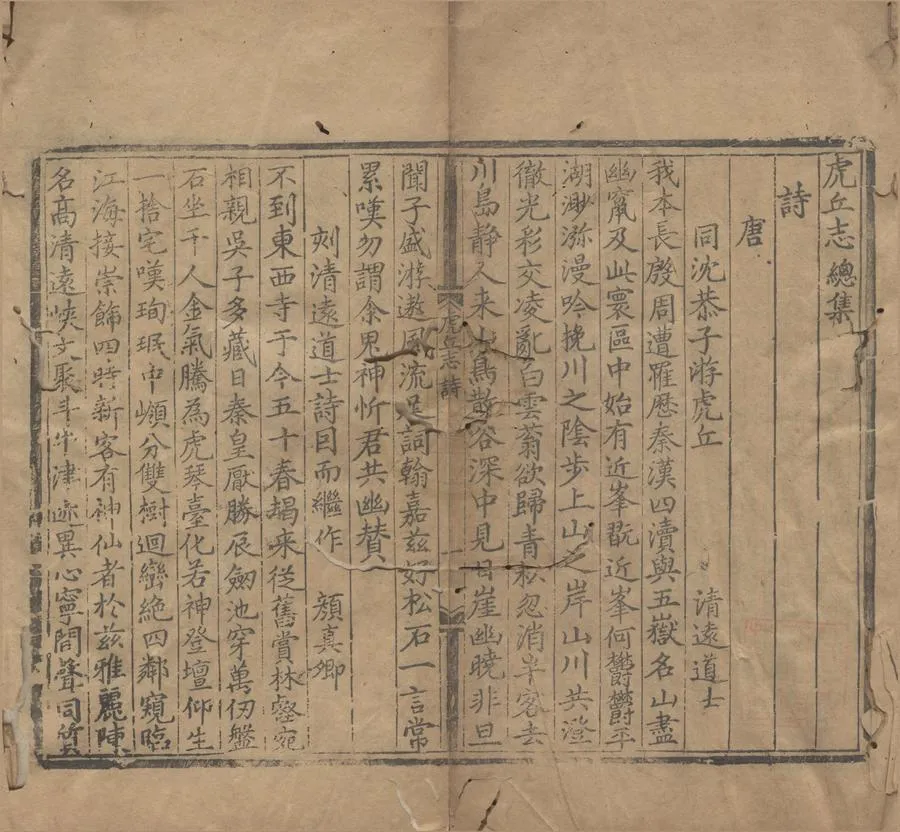 虎丘志總集
詩
唐
同沈恭子游虎丘 清遠道士
我本長殷周遭罹歷秦漢四瀆與五嶽名山盡
幽竄及此寰區中始有近峯翫近峯何鬱鬱平
湖渺瀰漫吟挽川之陰步上山之岸山川共澄
徹光彩交凌亂白雲蓊欲歸青松忽消半客去
川島靜人来山鳥散谷深中見日崖幽曉非旦
虎丘志 詩 一
聞子盛游遨風流足詞翰嘉兹好松石一言常
累嘆勿謂余鬼神忻君共幽賛
刻清遠道士詩因而繼作 顔真卿
不到東西寺于今五十春朅来從舊賞林壑宛
相親吳子多藏日秦皇厭勝辰劒池穿萬仞盤
石坐千人金氣騰為虎琴臺化若神登壇仰生
一捨宅嘆珣珉中嶺分雙樹迴巒絶四鄰窺臨
江海接崇飾四時新客有神仙者於兹雅麗陳
名高清遠峽文聚斗牛津迹異心寧間聲同質